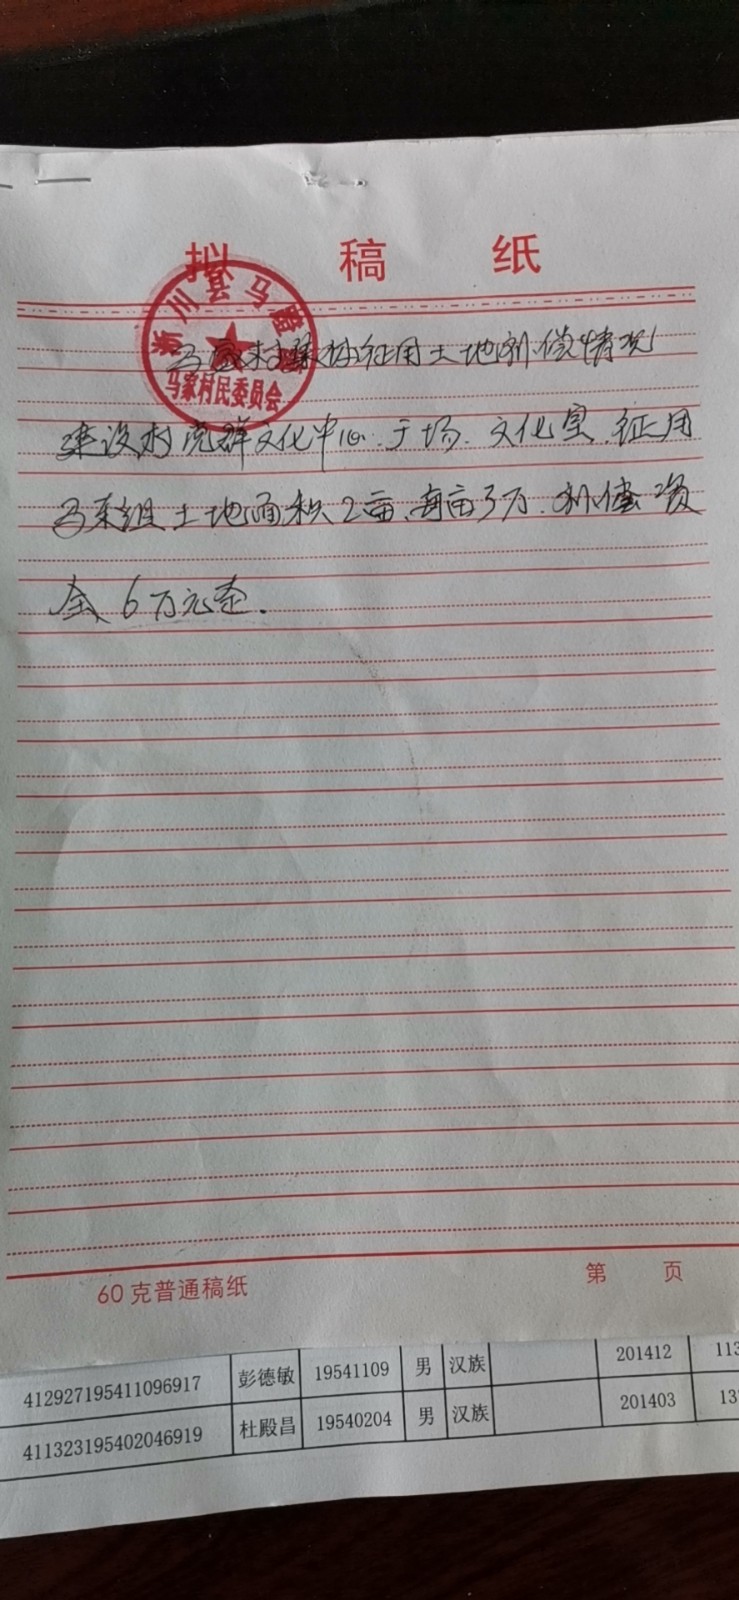 拟 稿 纸
淅川县马蹬
马家村民委员会
马家村集体征用土地补偿情况
建设村党群文化中心、广场、文化室、征用
马家组土地面积2亩、每亩3万、补偿资
金6万元整.
60克普通稿纸 第 页
412927195411096917 彭德敏 19541109 男 汉族 201412 113
411323195402046919 杜殿昌 19540204 男 汉族 201403 137